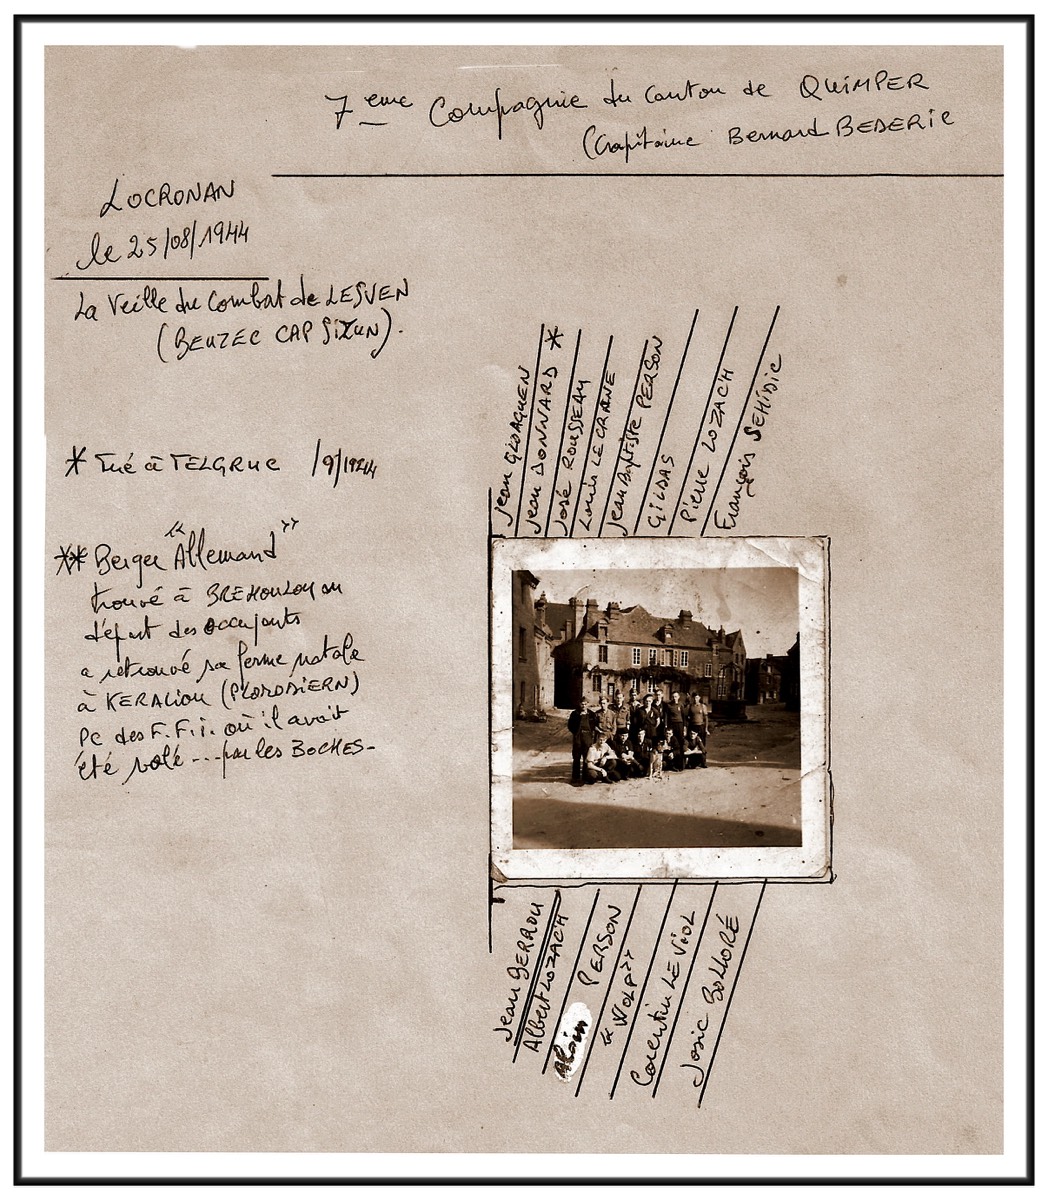 7eme Compagnie du Canton de QUIMPER
(Capitaine Bernard BEDERIC
LOCRONAN
le 25/08/1944
La Veille du Combat de LESVEN
(BEUZEC CAP SIZUN).
* Tué à TELGRUC /9/1944
** Berger "Allemand"
trouvé à BREHOULOU au
départ des occupants
a retrouvé sa ferme natale
à KERALIOU (PLOMODIERN)
PC des F.F.i. où il avait
été volé ... par les BOCHES-
Jean GLOAGUEN
Jean DONNARD *
José ROUSSEAU
Louis LE GRANE
Jean Baptiste PERSON
GILDAS
Pierre LOZAC'H
François SEHEDIC
Jean
Albert LOZAC'H
Alain PERSON
"WOLF"
Corentin LE VIOL
Josic BOLLORÉ